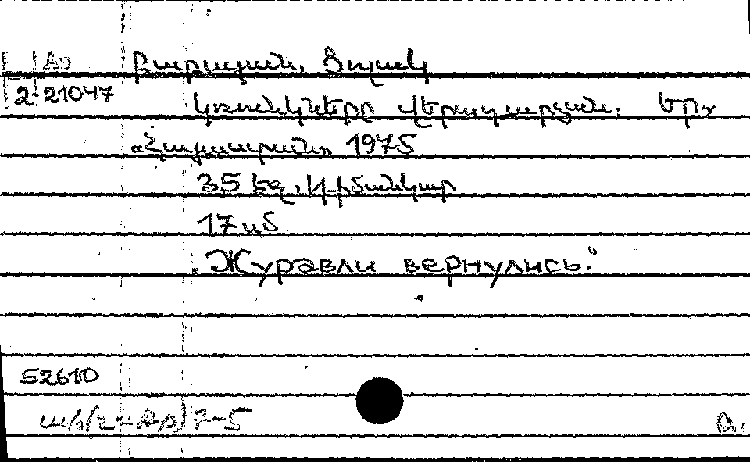 Բաբայան, Ցոլակ
2-21047
Կռունկները վերադարձան. Եր.,
«Հայաստան» 1975
35 էջ, 1 դիմանկար
17 սմ
"Журавли вернулись."
52610
7-5